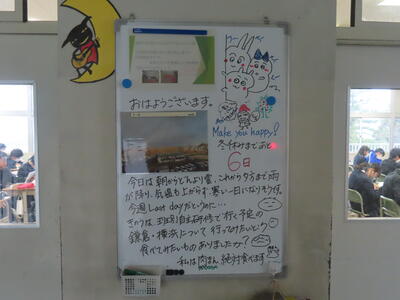 おはようございます。
Make you happy!
冬休みまであと
6日
今日は朝からどんより雲、これから夕方まで雨
が降り、気温も上がらず、寒い一日になりそうです。
今週Last dayだというのに…
きのうは、班別自主研修で行く予定の
鎌倉・横浜について行ってみたいところ
食べてみたいものありましたか?
私は肉まん絶対食べます